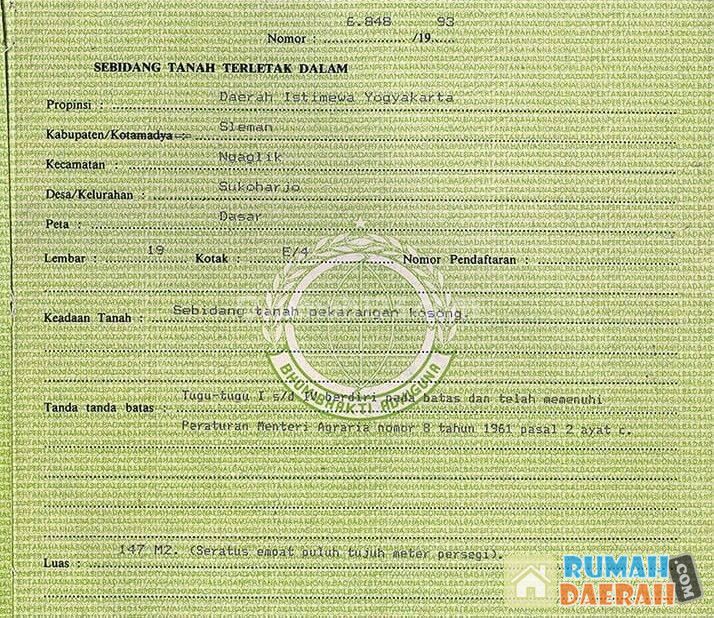 6.848 93
Nomor : ................ /19......
SEBIDANG TANAH TERLETAK DALAM
Propinsi : Daerah Istimewa Yogyakarta
Kabupaten/Kotamadya : Sleman
Kecamatan : Ngaglik
Desa/Kelurahan : Sukoharjo
Peta : Dasar
Lembar : 19 Kotak : E/4 Nomor Pendaftaran :
Keadaan Tanah : Sebidang tanah pekarangan kosong.
BHUMI BHAKTI ADHIGUNA
Tanda tanda batas : Tugu-tugu I s/d IV berdiri pada batas dan telah memenuhi
Peraturan Menteri Agraria nomor 8 tahun 1961 pasal 2 ayat c.
Luas : 147 M2. (Seratus empat puluh tujuh meter persegi).
RUMAH
DAERAH.COM